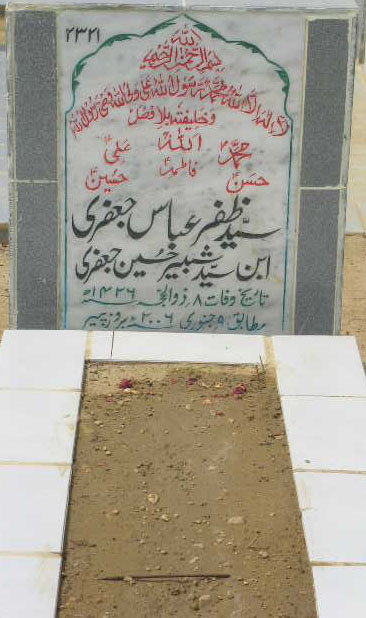 ۲۳۲۱
الله
بسم اللہ الرحمن الرحیم
لا الہ الا اللہ محمد رسول اللہ علی ولی اللہ وصی رسول اللہ
و خلیفتہ بلا فصل
محمدؐ اللہ علیؑ
حسنؑ فاطمہؑ حسینؑ
سیّد ظفر عباس جعفری
ابن سیّد شبیر حسین جعفری
تاریخ وفات ۸ ذوالحجہ ۱۴۲۶ھ
مطابق ۹ جنوری ۲۰۰۶ء بروز پیر